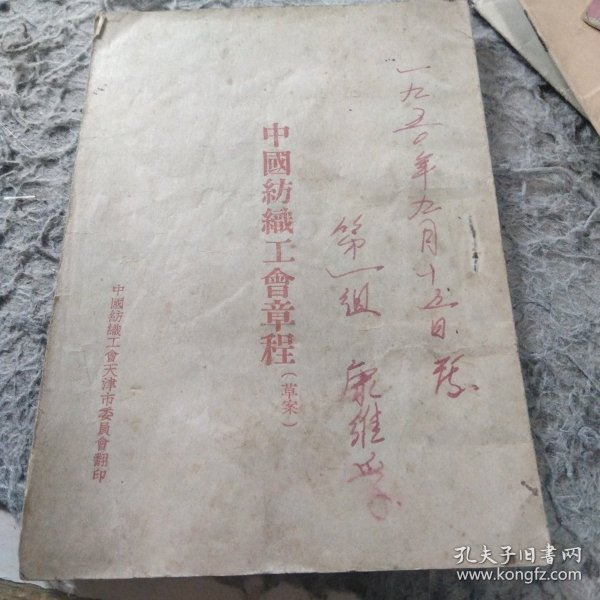 一九五〇年九月十五日
第一组
中國紡織工會章程(草案)
中國紡織工會天津市委員會翻印
孔夫子旧书网
www.kongfz.com